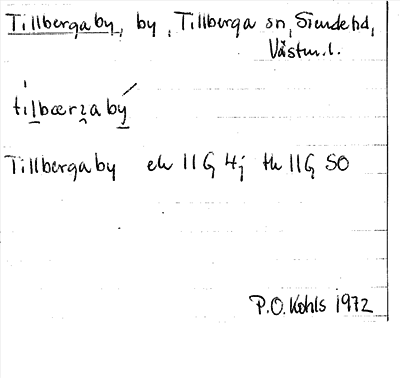 Tillberga by, by, Tillberga sn, Siende hd,
Västm.l.
tilbærga by
Tillberga by ek 11G 4j tk 11G SO
P.O. Kohls 1972